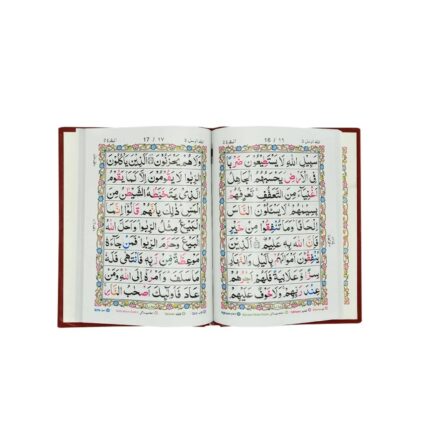 16 / ١٦
سَبِيْلِ اللّٰهِ لَا يَسْتَطِيْعُوْنَ ضَرْبًا
فِى الْاَرْضِ يَحْسَبُهُمُ الْجَاهِلُ
اَغْنِيَآءَ مِنَ التَّعَفُّفِ تَعْرِفُهُمْ
بِسِيْمٰهُمْ لَا يَسْـَٔلُوْنَ النَّاسَ
اِلْحَافًا وَمَا تُنْفِقُوْا مِنْ خَيْرٍ
فَاِنَّ اللّٰهَ بِهٖ عَلِيْمٌ اَلَّذِيْنَ
يُنْفِقُوْنَ اَمْوَالَهُمْ بِالَّيْلِ وَالنَّهَارِ
سِرًّا وَّعَلَانِيَةً فَلَهُمْ اَجْرُهُمْ
عِنْدَ رَبِّهِمْ وَلَا خَوْفٌ عَلَيْهِمْ
17 / ١٧
وَلَا هُمْ يَحْزَنُوْنَ اَلَّذِيْنَ يَاْكُلُوْنَ
الرِّبٰوا لَا يَقُوْمُوْنَ اِلَّا كَمَا يَقُوْمُ
الَّذِىْ يَتَخَبَّطُهُ الشَّيْطٰنُ مِنَ
الْمَسِّ ذٰلِكَ بِاَنَّهُمْ قَالُوْٓا اِنَّمَا
الْبَيْعُ مِثْلُ الرِّبٰوا وَاَحَلَّ اللّٰهُ
الْبَيْعَ وَحَرَّمَ الرِّبٰوا فَمَنْ جَآءَهٗ
مَوْعِظَةٌ مِّنْ رَّبِّهٖ فَانْتَهٰى فَلَهٗ
مَا سَلَفَ وَاَمْرُهٗٓ اِلَى اللّٰهِ وَمَنْ
عَادَ فَاُولٰٓئِكَ اَصْحٰبُ النَّارِ